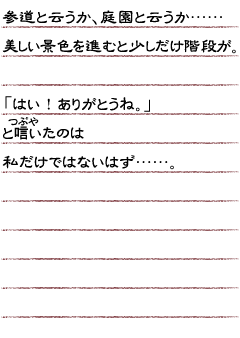 参道と云うか、庭園と云うか……
美しい景色を進むと少しだけ階段が。
「はい！ありがとうね。」
つぶや
と呟いたのは
私だけではないはず……。